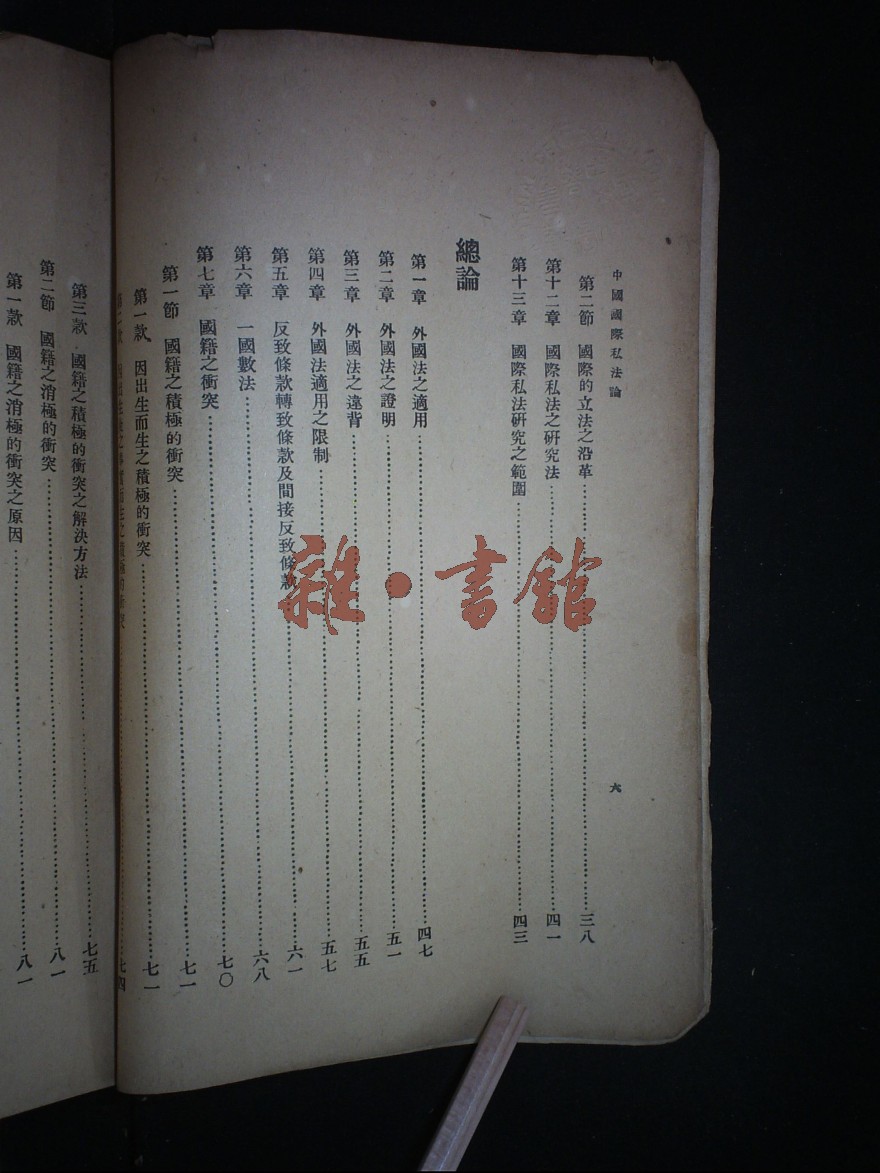 中國國際私法論
六
第二節 國際的立法之沿革……三八
第十二章 國際私法之研究法……四一
第十三章 國際私法研究之範圍……四三
總論
第一章 外國法之適用……四七
第二章 外國法之證明……五一
第三章 外國法之違背……五五
第四章 外國法適用之限制……五七
第五章 反致條款轉致條款及間接反致條款……六一
第六章 一國數法……六八
第七章 國籍之衝突……七〇
第一節 國籍之積極的衝突……七一
第一款 因出生而生之積極的衝突……七一
積極的衝突……七四
第三款 國籍之積極的衝突之解決方法……七五
第二節 國籍之消極的衝突……八一
第一款 國籍之消極的衝突之原因……八一
雜·書館